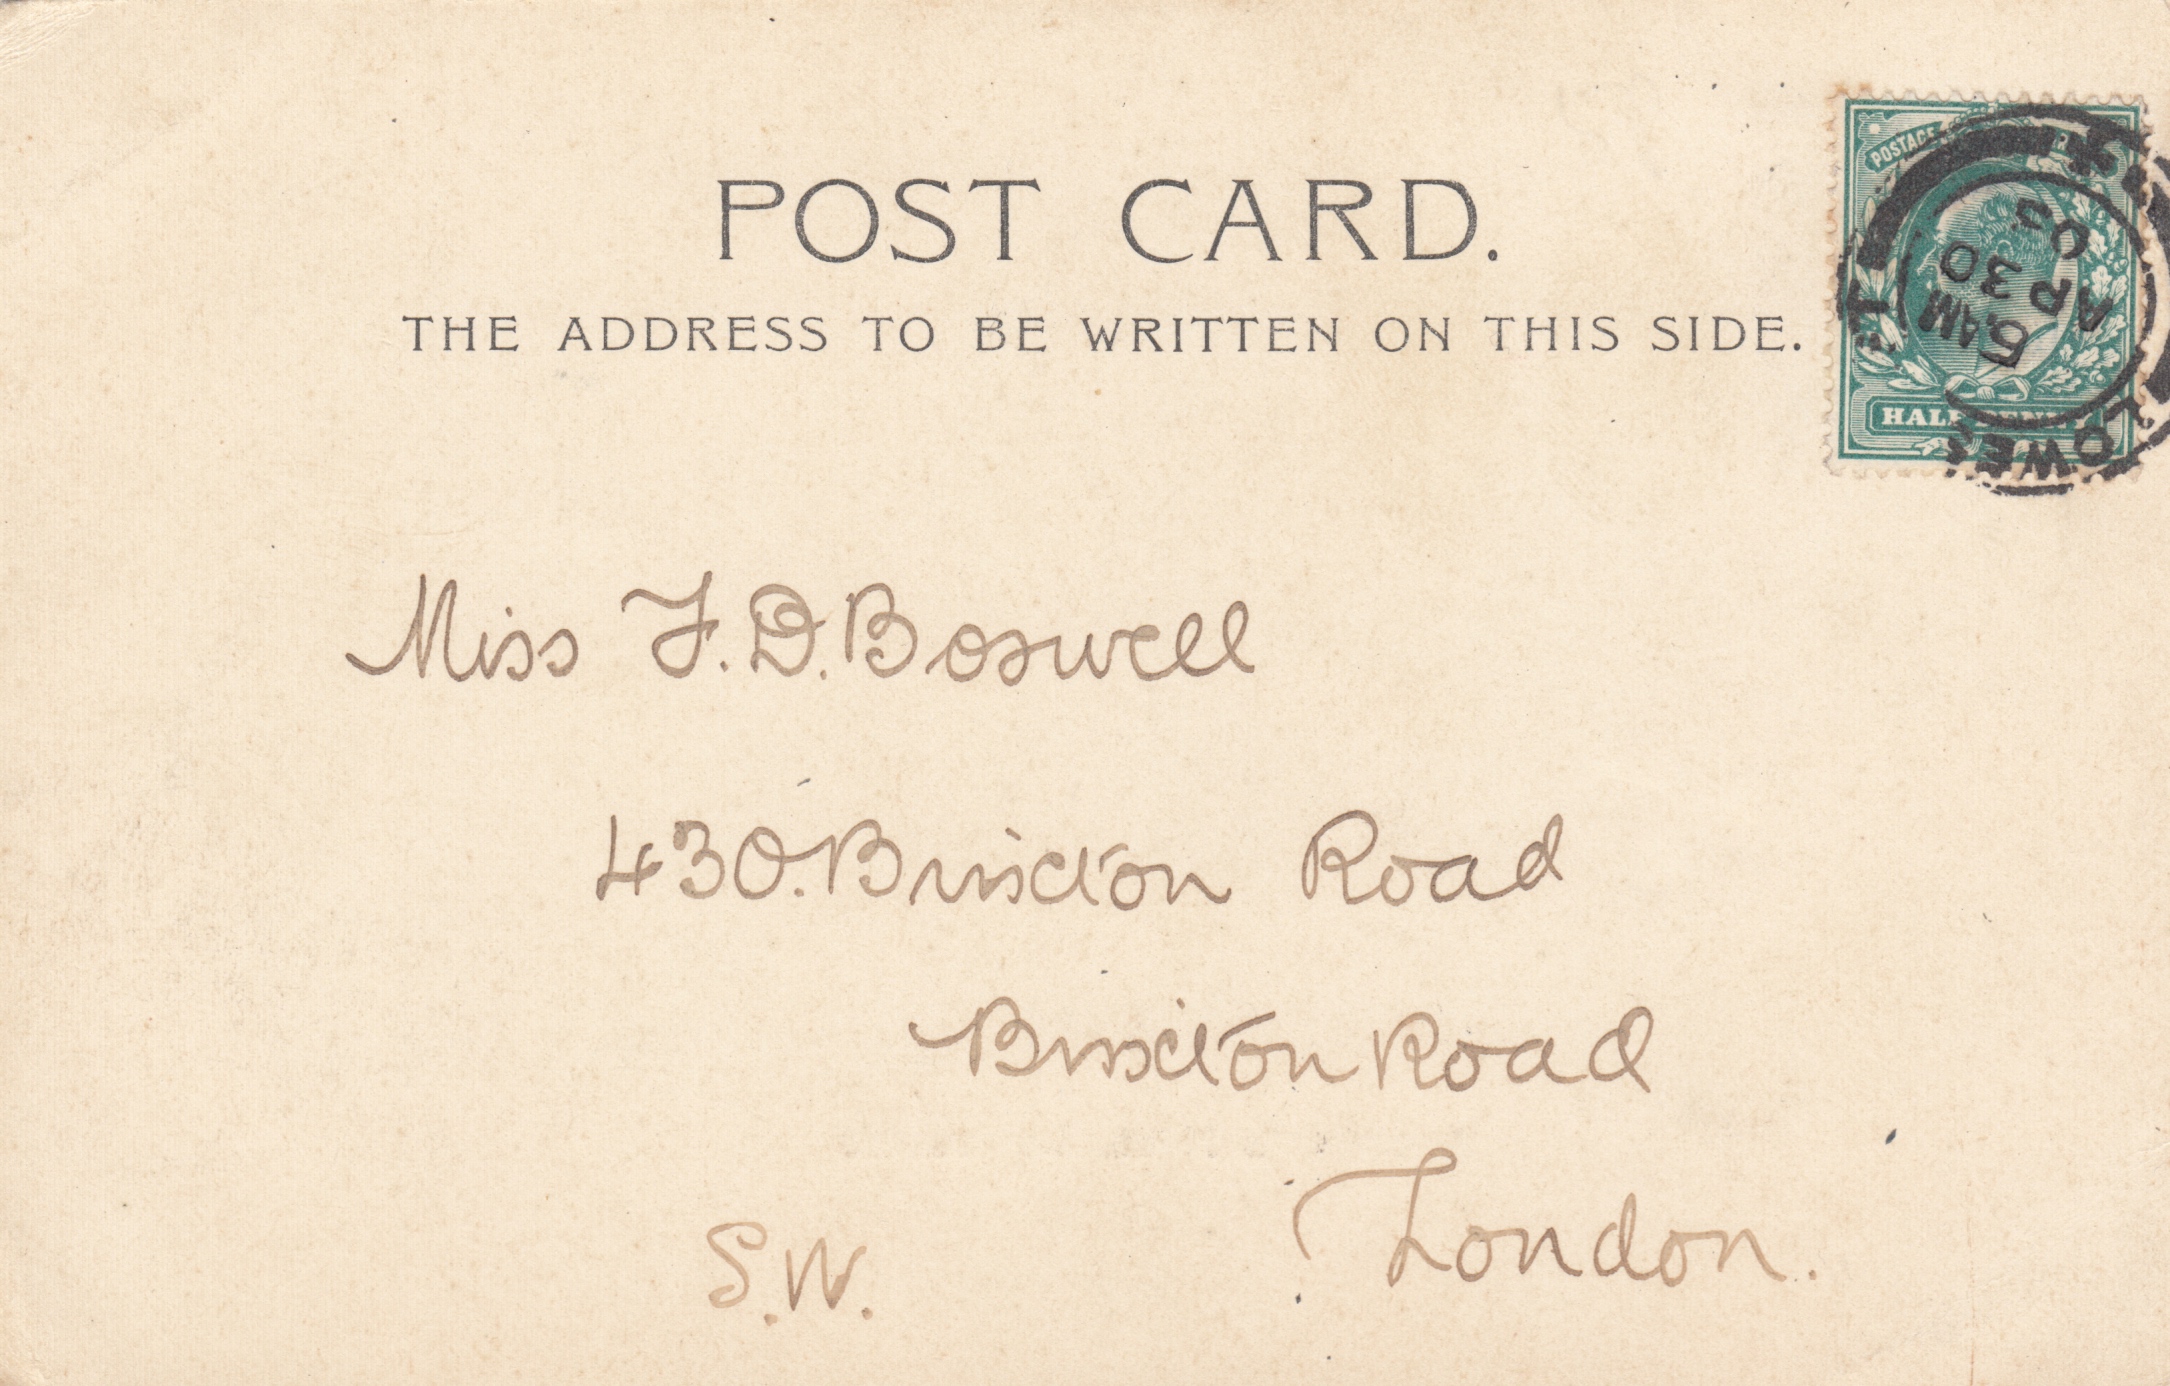 POST CARD.
THE ADDRESS TO BE WRITTEN ON THIS SIDE.
POSTAGE
HALFPENNY
LOWES
5 AM
AP 30
Miss F. D. Boswell
430. Brixton Road
Brixton Road
London.
S.W.